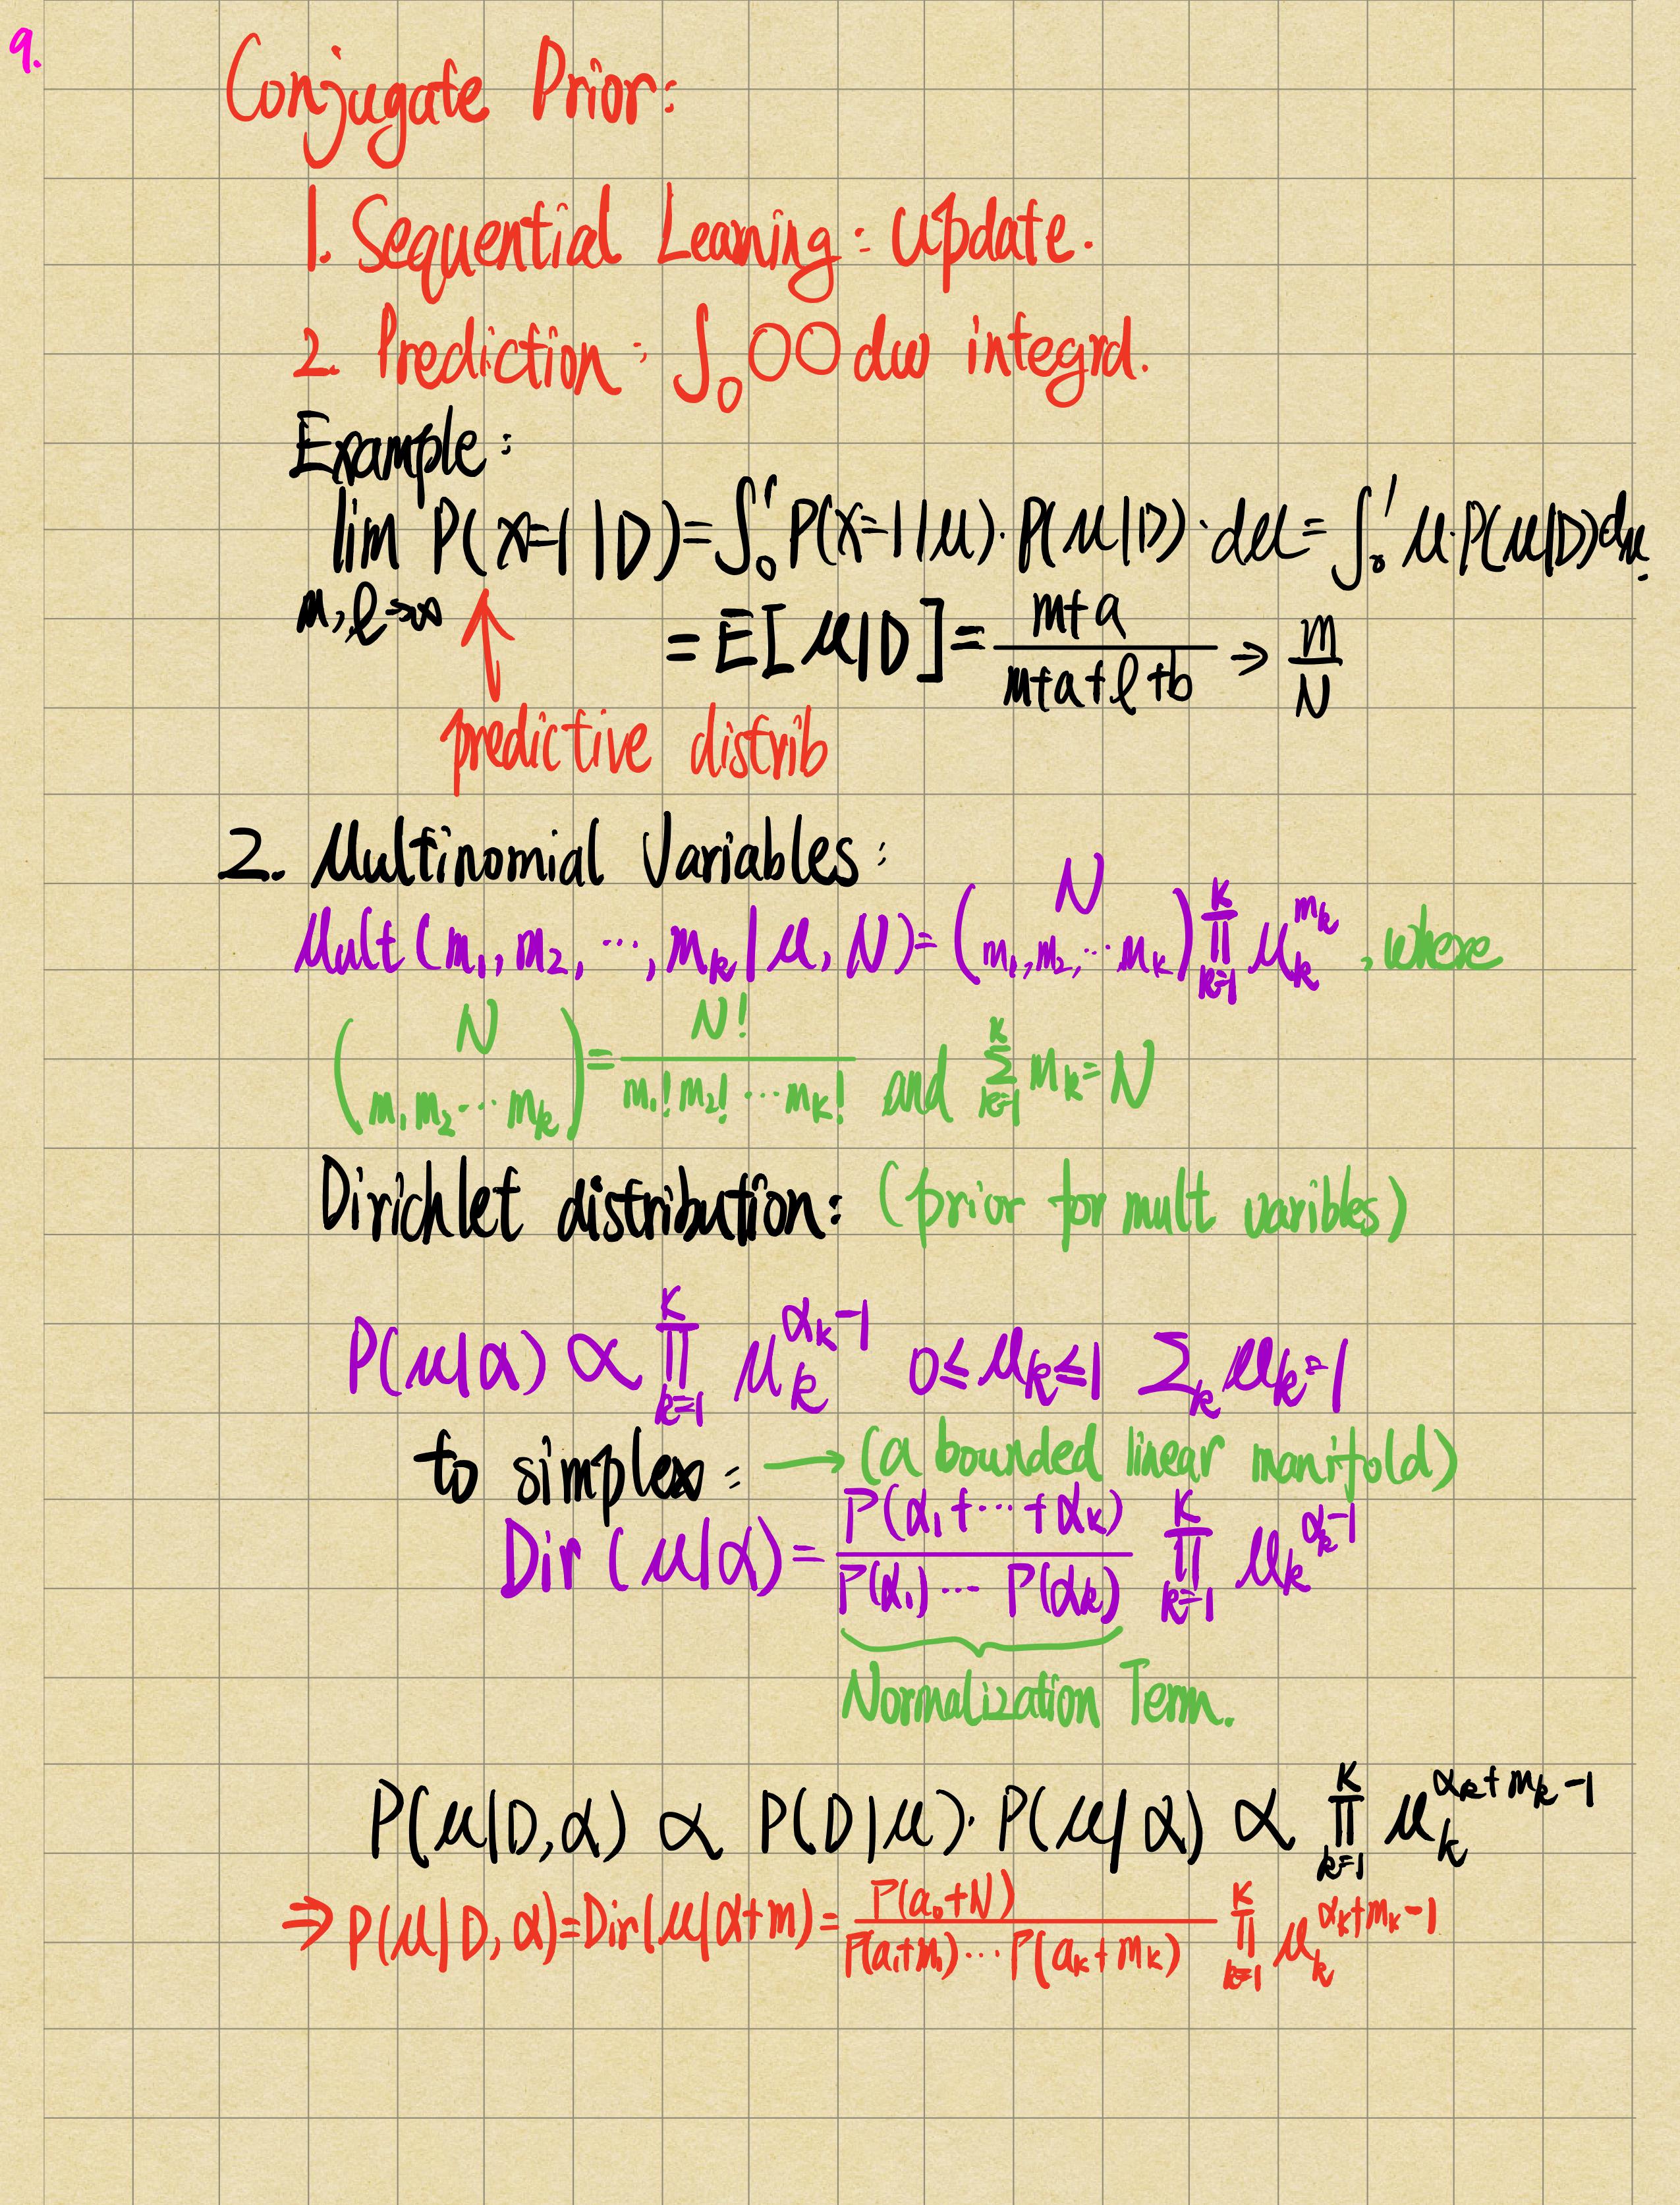 9.
Conjugate Prior:
1. Sequential Learning: update.
2. Prediction: ∫₀ ○○ dw integral.
Example:
lim P(x=1|D)=∫₀¹ P(x=1|μ)·P(μ|D)·dμ=∫₀¹ μ·P(μ|D)dμ
m,ℓ→∞
=E[μ|D]=(m+a)/(m+a+ℓ+b) → m/N
predictive distrib
2. Multinomial Variables:
Mult(m₁, m₂, ···, m_k|μ, N)=(N over m₁,m₂,···m_k) ∏_{k=1}^{K} μ_k^{m_k}, where
(N over m₁m₂···m_k)=N!/(m₁!m₂!···m_k!) and ∑_{k=1}^{K} m_k=N
Dirichlet distribution: (prior for mult varibles)
P(μ|α) ∝ ∏_{k=1}^{K} μ_k^{α_k-1} 0≤μ_k≤1 ∑_k μ_k=1
to simplex: → (a bounded linear manifold)
Dir(μ|α)=Γ(α₁+···+α_K)/(Γ(α₁)···Γ(α_k)) ∏_{k=1}^{K} μ_k^{α_k-1}
Normalization Term.
P(μ|D,α) ∝ P(D|μ)·P(μ|α) ∝ ∏_{k=1}^{K} μ_k^{α_k+m_k-1}
⇒ P(μ|D,α)=Dir(μ|α+m)=Γ(a₀+N)/(Γ(a₁+m₁)···Γ(a_K+m_K)) ∏_{k=1}^{K} μ_k^{α_k+m_k-1}